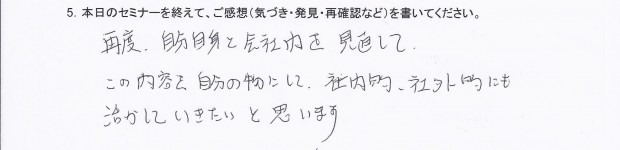 5. 本日のセミナーを終えて、ご感想（気づき・発見・再確認など）を書いてください。
再度、自分自身と会社内を見直して、
この内容を自分の物にして、社内的、社外的にも
活かしていきたいと思います